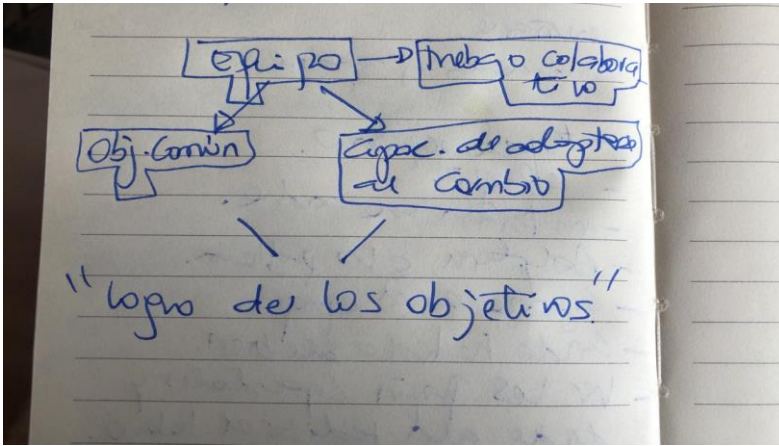 equipo
trabajo colabora
tivo
Obj. Común
Capac. de adaptarse
al cambio
"logro de los objetivos"